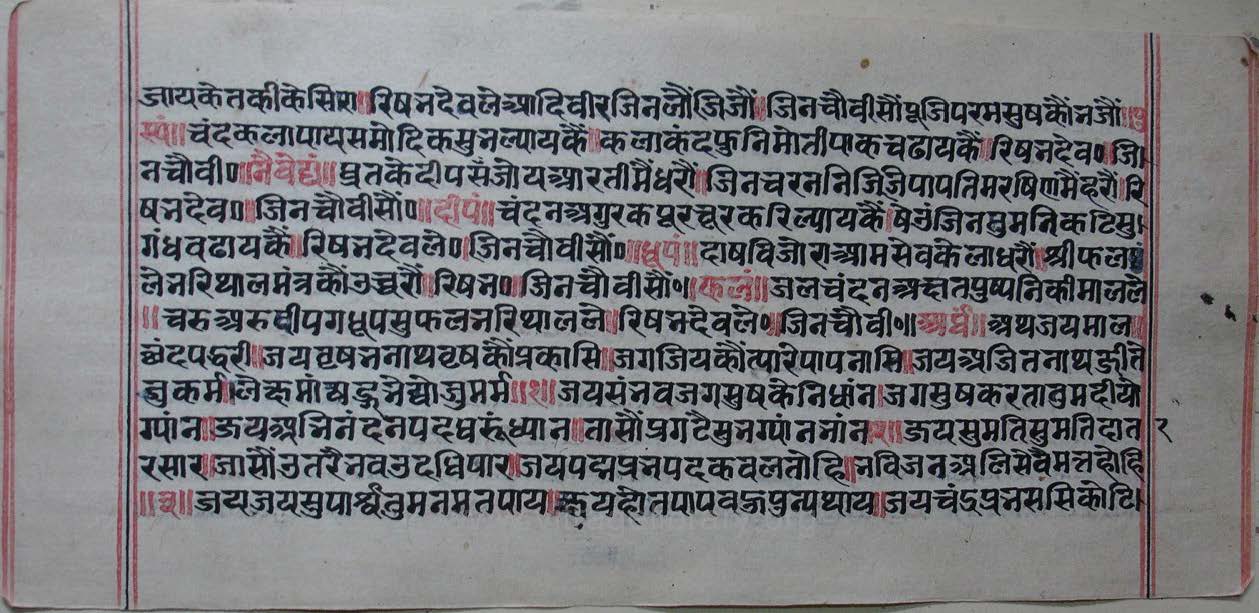 जायकेतकीकेसिरा॥रिषभदेवलेआदिवीरजिनलौंजिजौं॥जिनचौवीसौंपूजिपरमसुषकौंभजौं॥पु
ष्पं॥चंदकलापायसमोदिकसुभल्यायकैं॥कलाकंदफुनिमोतीपाकचढायकैं॥रिषभदेव॰॥जि
नचौवी॰॥नैवेद्यं॥घ्रतकेदीपसँजोयआरतीमैंधरौं॥जिनचरननिजिजेपापतिमर मैंहरौं॥रि
षभदेव॰॥जिनचौवीसौं॰॥दीपं॥चंदनअगुरकपूरचूरकरिल्यायकैं॥षेउंजिनसुमतिकटिसु
गंधवढायकैं॥रिषभदेवले॰॥जिनचौवीसौ॰॥धूपं॥दाषविजोराआमसेवकेलाधरौं॥श्रीफल
लेभरिथालमंत्रकौंउच्चरौं॥रिषभ॰॥जिनचौवीसौ॰॥फलं॥जलचंदनअक्षतपुष्पनिकीमालले
॥चरुअरुदीपगधूपसुफलभरिथालले॥रिषभदेवले॰॥जिनचौवी॰॥अर्घं॥अथजयमाल॥
छंदपद्धरी॥जयवृषभनाथवृषकौंप्रकासि॥जगजियकौंत्यारेपापनासि॥जयअजितनाथजीते
जुकर्म॥ जुमर्म॥१॥जयसंभवजगसुषकेनिधांन॥जगसुषकरतातुमदीयो
ग्यांन॥जयअभिनंदनपदधरूंध्यान॥तासौंप्रगटैसुभग्यांनभांन॥२॥जयसुमतिसुमतिदात २
रसार॥जासौंउतरैंभवउदधिपार॥जयपद्मप्रभपदकवलतोहि॥भविजनअलिसेवैंमत्तहोहि
॥३॥जयजयसुपार्श्वतुमनमतपाय॥क्षयहोतपापवहुपुन्यथाय॥जयचंद्रप्रभससिकोटि